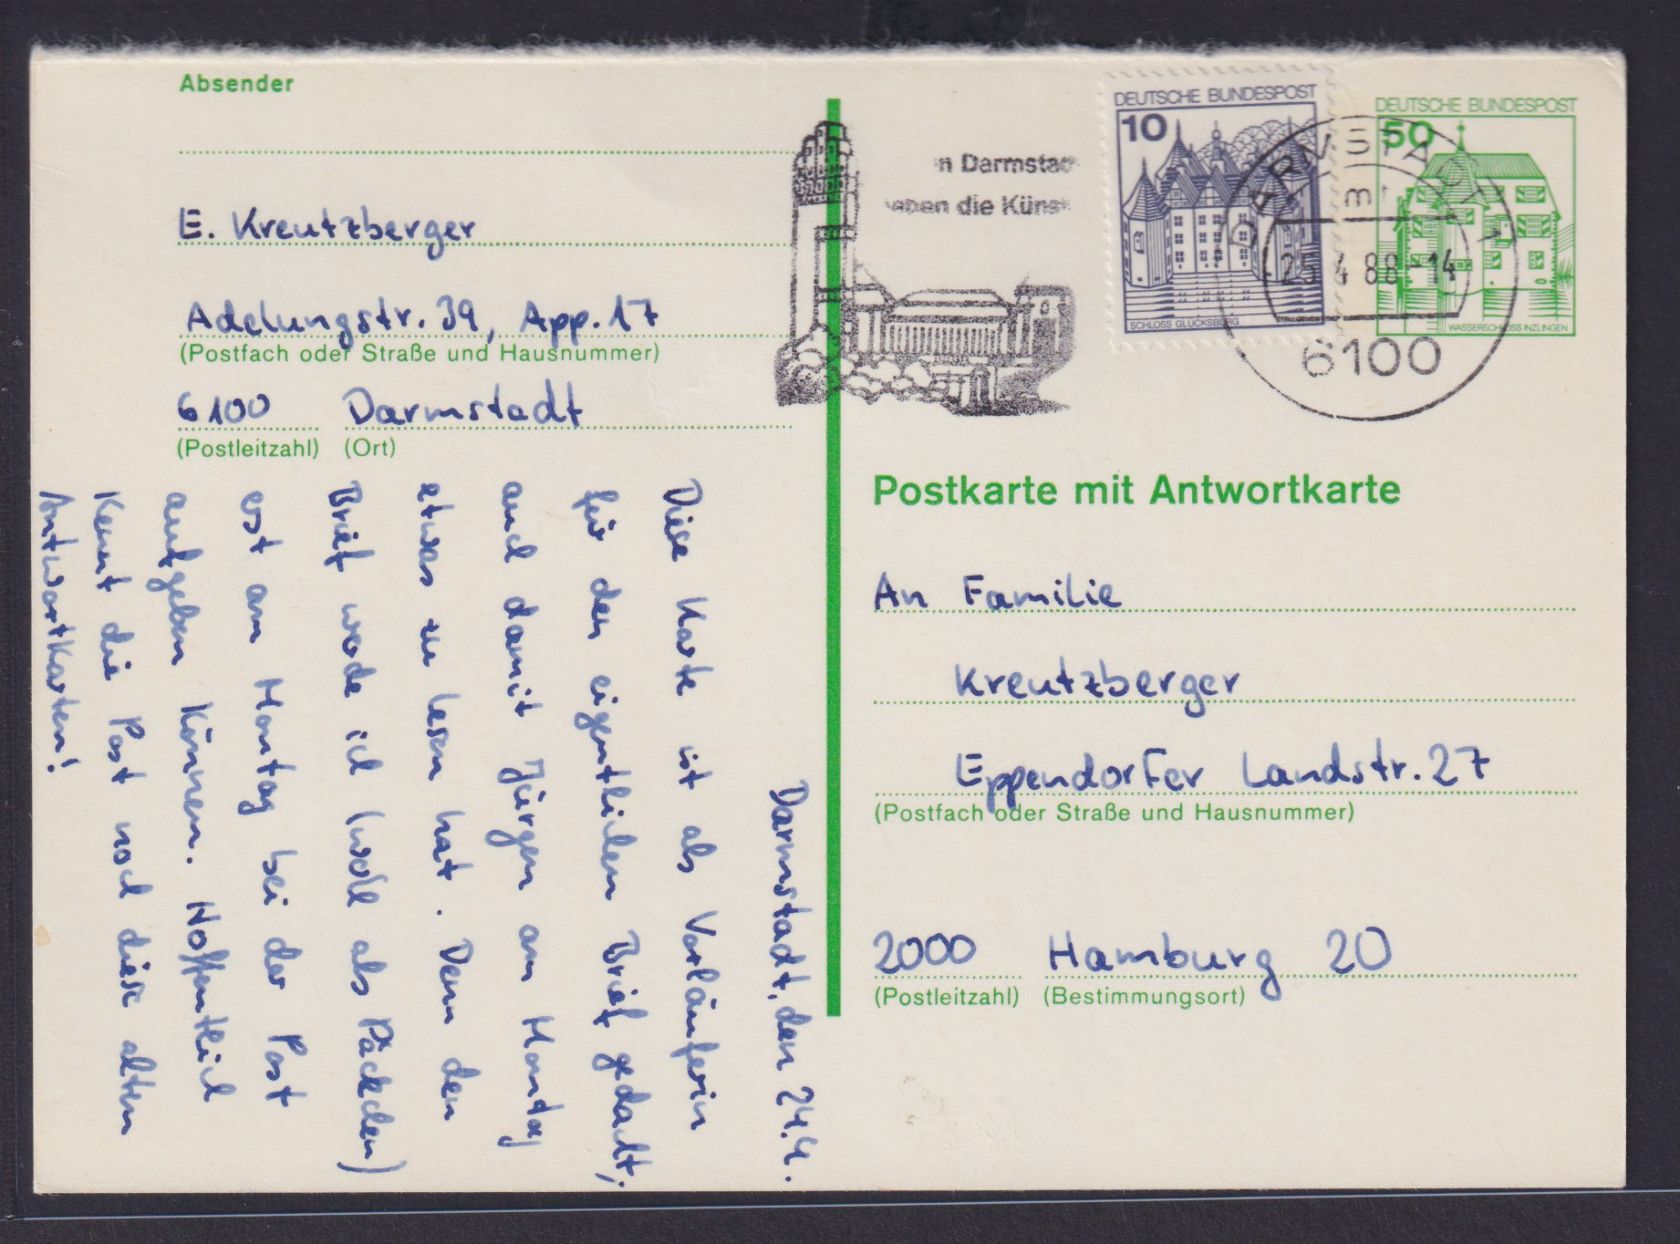 Absender
E. Kreutzberger
Adelungstr. 39, App. 17
(Postfach oder Straße und Hausnummer)
6100 Darmstadt
(Postleitzahl) (Ort)
Darmstadt, den 24.4.
Diese Karte ist als Vorläuferin
für den eigentlichen Brief gedacht,
und damit Jürgen am Montag
etwas zu lesen hat. Denn den
Brief werde ich (wohl als Päckchen)
erst am Montag bei der Post
aufgeben können. Hoffentlich
kennt die Post noch diese alten
Antwortkarten!
n Darmstad
haben die Küns
DEUTSCHE BUNDESPOST
10
SCHLOSS GLÜCKSBURG
DEUTSCHE BUNDESPOST
50
WASSERSCHLOSS INZLINGEN
DARMSTADT 1
mr
25.4.88-14
6100
Postkarte mit Antwortkarte
An Familie
Kreutzberger
Eppendorfer Landstr. 27
(Postfach oder Straße und Hausnummer)
2000 Hamburg 20
(Postleitzahl) (Bestimmungsort)